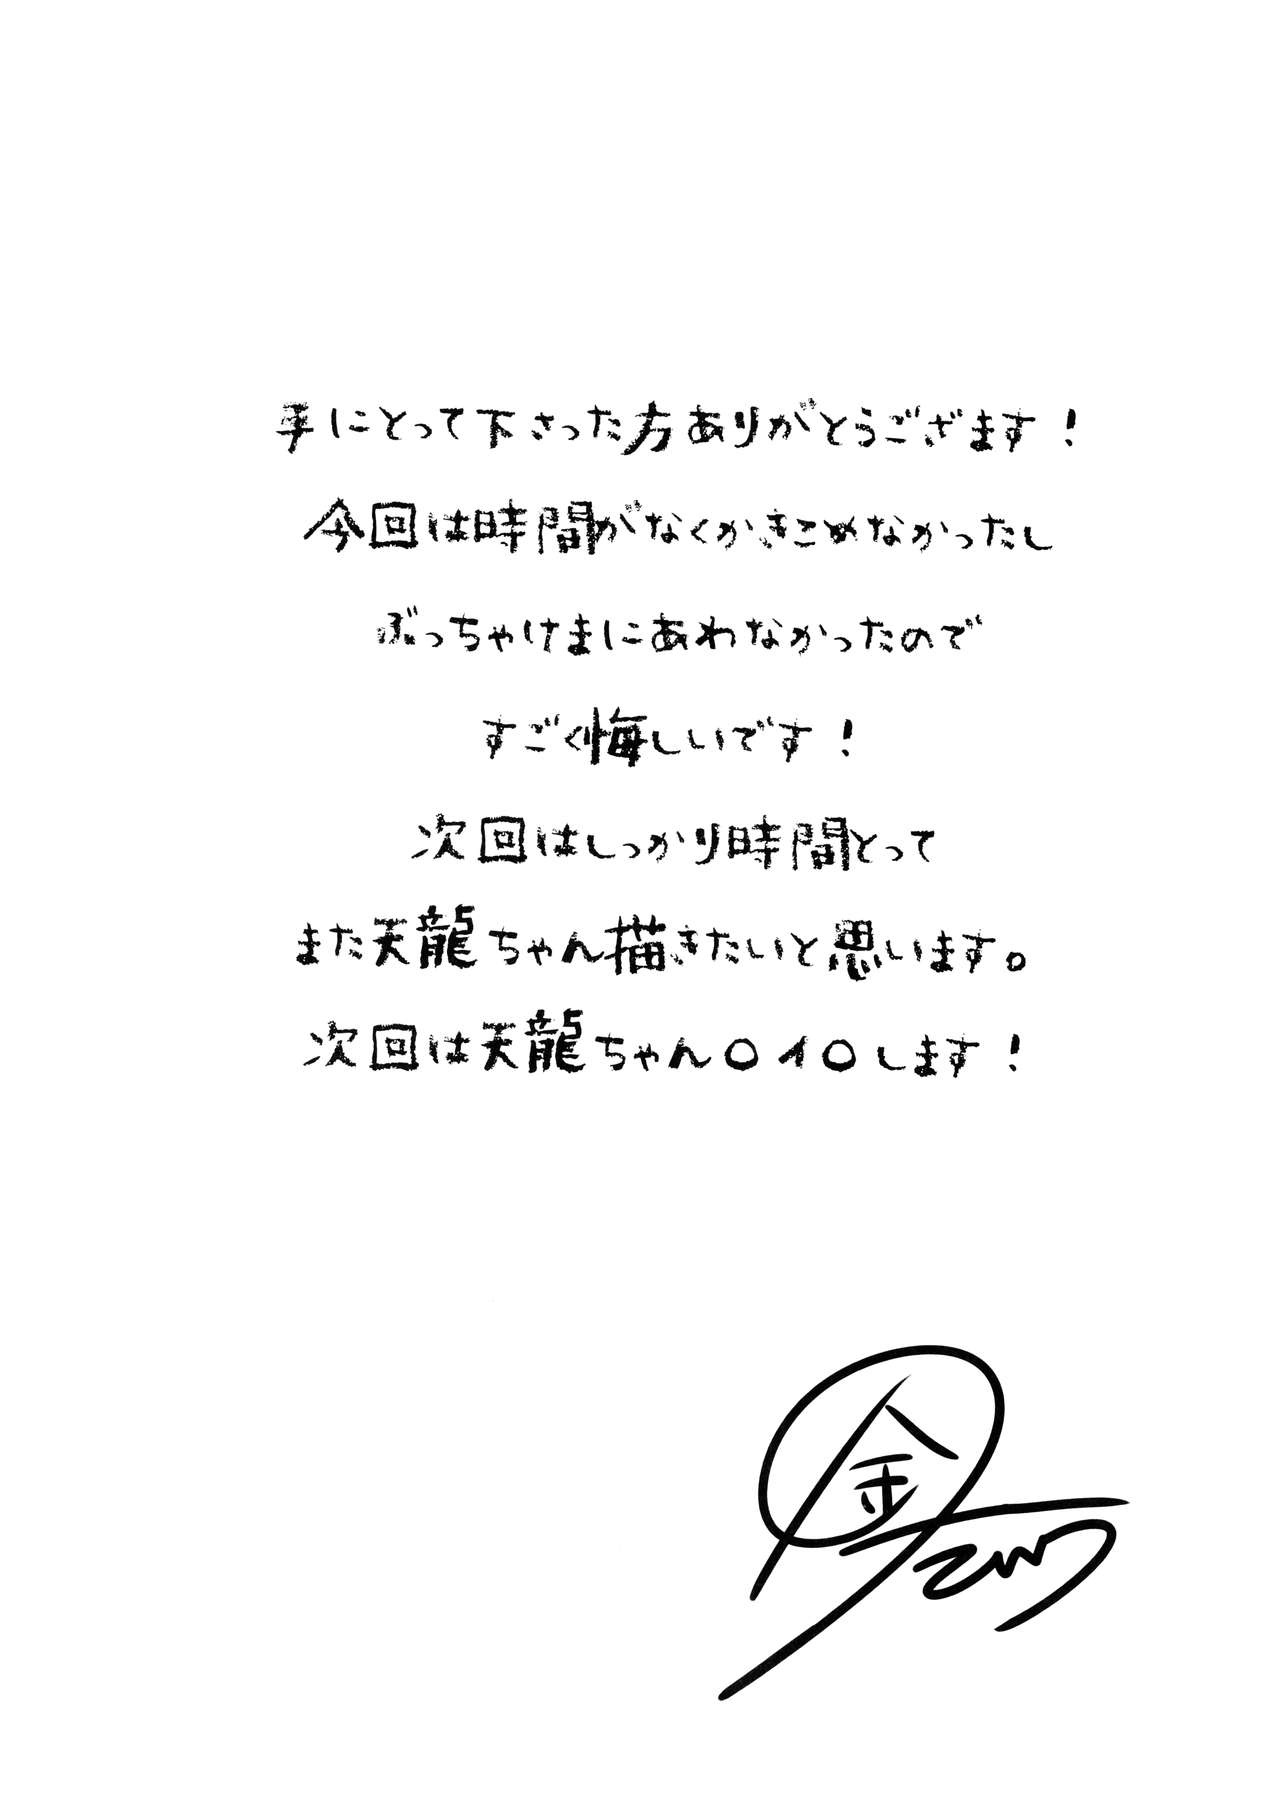 手にとって下さった方ありがとうござます！
今回は時間がなくかきこめなかったし
ぶっちゃけまにあわなかったので
すごく悔しいです！
次回はしっかり時間とって
また天龍ちゃん描きたいと思います。
次回は天龍ちゃん○イ○します！
金